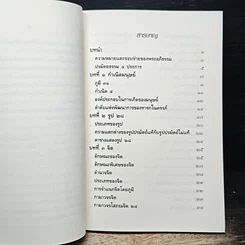 สารบาญ
บทนำ
ความหมายและขอบข่ายของพระอภิธรรม
ปรมัตถธรรม ๔ ประการ
บทที่ ๑ กำเนิดมนุษย์
ภูมิ ๓๑
กำเนิด ๔
องค์ประกอบในการเกิดของมนุษย์
ลำดับแห่งพัฒนาการของทารกในครรภ์
บทที่ ๒ รูป ๒๘
ประเภทของรูป
ความแตกต่างของรูปปรมัตถ์แท้กับรูปปรมัตถ์ไม่แท้
ตารางแสดงรูป ๒๘
บทที่ ๓ จิต
ลักษณะของจิต
ลักษณะพิเศษของจิต
อำนาจของจิต
ประเภทของจิต
การจำแนกจิตโดยภูมิ
กามาวจรจิต
กามาวจรโสภณจิต ๒๔